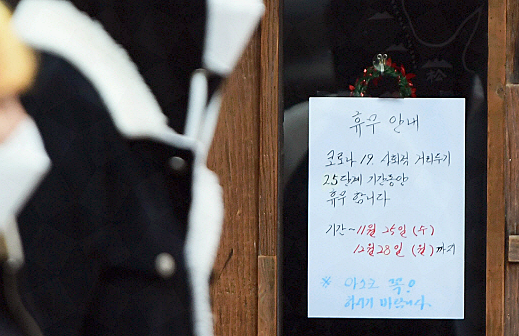 휴무 안내
코로나 19. 사회적 거리두기
2.5단계 기간동안
휴무 합니다
기간~11월 25일 (수)
12월 28일 (월)까지
※ 마스크 꼭!
하시기 바랍니다.
松